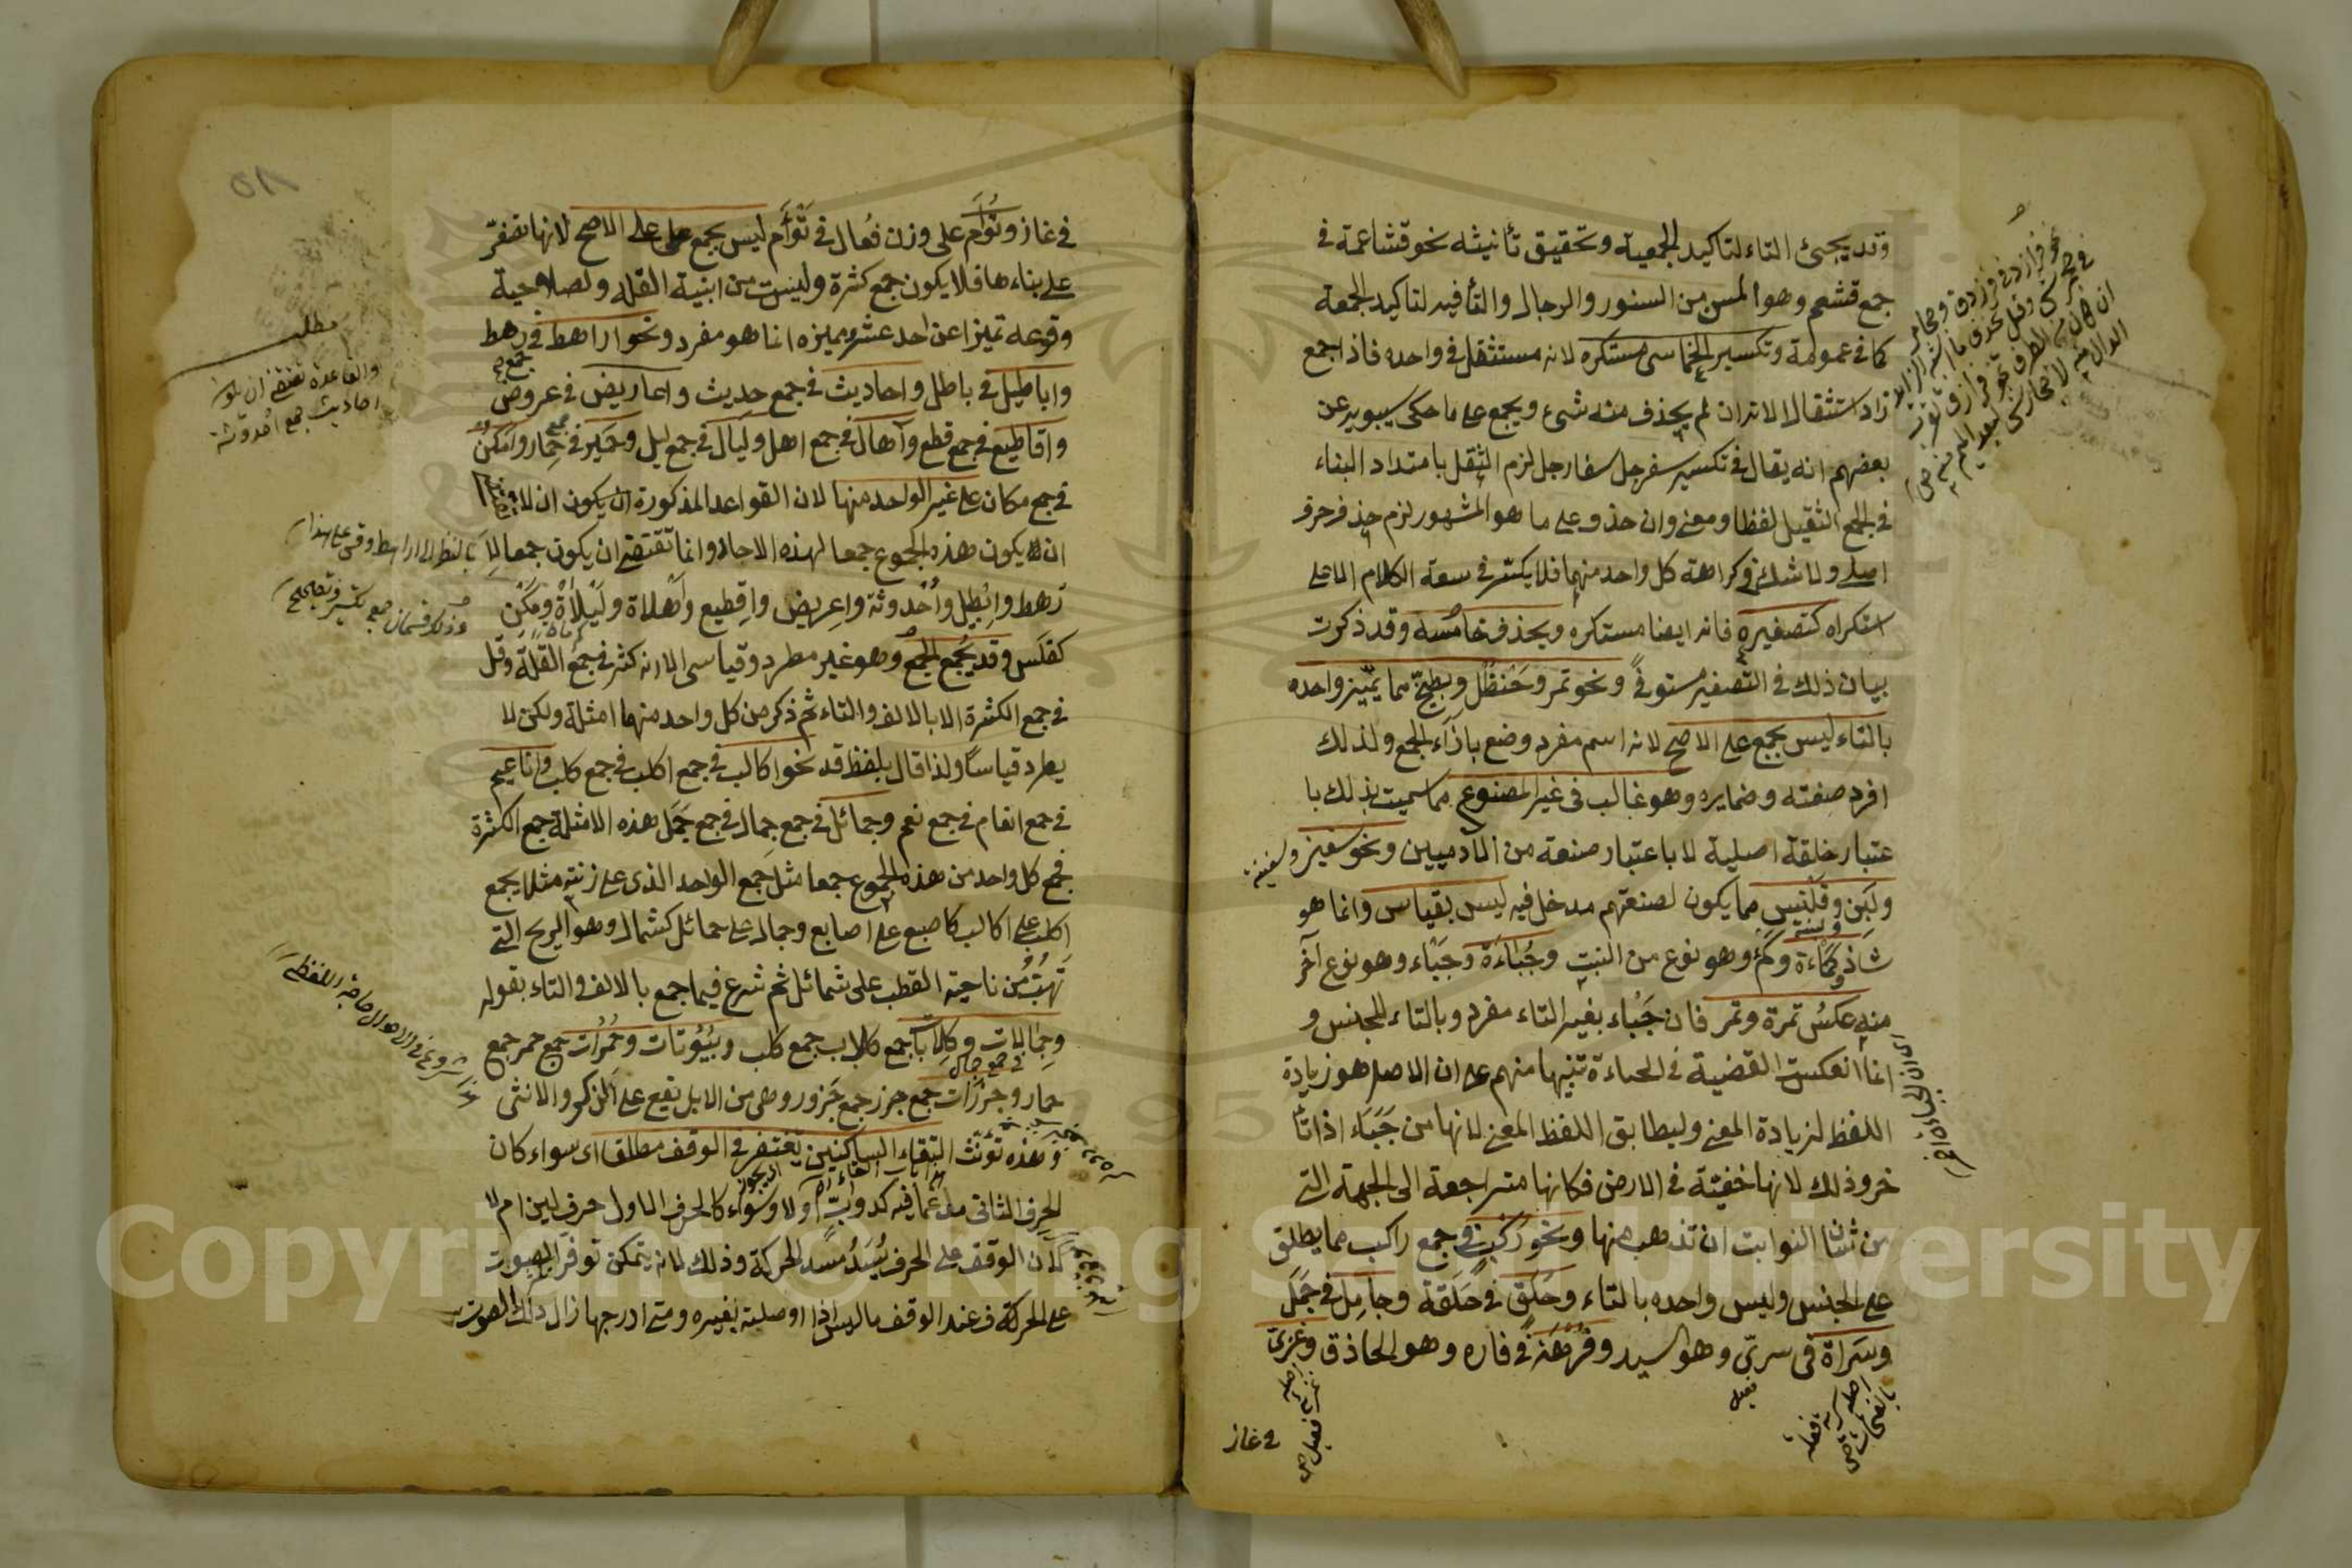 وقد يجيئ التاء لتاكيد الجمعية وتحقيق تأنيثه نحو قشاعمة في
جمع قشعم وهو المسن من السنور والرجال والتأ فيه لتاكيد الجمعة
كما في عمومة وتكسير الخماسى مستكره لانه مستثقل في واحده فاذا جمع
زاد استثقالا لانه ان لم يحذف منه شىء ويجمع على ما حكى سيبويه عن
بعضهم انه يقال في تكسير سفرجل سفارجل لزم الثقل بامتداد البناء
في الجمع الثقيل لفظا ومعنى وان حذف على ما هو المشهور لزم حذف حرف
اصلى ولا شك في كراهة كل واحد منهما فلا يكسر في سعة الكلام الا على
استكراه كتصغيره فانه ايضا مستكره ويحذف خامسه وقد ذكرت
بيان ذلك في التصغير مستوفىً ونحو تمر وحنظل وبطيخ مما يميز واحده
بالتاء ليس بجمع على الاصح لانه اسم مفرد وضع بازاء الجمع ولذلك
افرد صفته وضمايره وهو غالب في غير المصنوع مما سميت بذلك با
عتبار خلقة اصلية لا باعتبار صنعة من الآدميين ونحو سفين وسفينة
ولبن وقلنس مما يكون لصنعتهم مدخل فيه ليس بقياس وانما هو
ولبنة
شاذ وكمأة وكمؤ وهو نوع من النبت وجبأة وجبأ وهو نوع آخر
منه عكس تمرة وتمر فان جبأ بغير التاء مفرد وبالتاء للجنس و
انما انعكست القضية في الجباءة تنبيها منهم على ان الاصل هو زيادة
اللفظ لزيادة المعنى وليطابق اللفظ المعنى لانها من جبأ اذا تأ
خر وذلك لانها خفيئة في الارض فكانها متراجعة الى الجهة التى
من شان النوابت ان تذهب منها ونحو ركب في جمع راكب مما يطلق
على الجنس وليس واحده بالتاء وحلق في حلقة وجامل في جمل
وسراة في سرىّ وهو السيد وفرهة في فاره وهو الحاذق وغزىّ
في غاز
في غاز وتؤام على وزن فعال في توأم ليس بجمع على الاصح لانها تصغر
على بناءها فلا يكون جمع كثرة وليست من ابنية القلة ولصلاحية
وقوعه تميزا عن احد عشر ومميزه انما هو مفرد ونحو اراهط في رهط
واباطيل في باطل واحاديث في جمع حديث واعاريض في عروض
واقاطيع في جمع قطع وآهال في جمع اهل وليال في جمع ليل وحمير في حمار وامكن
في جمع مكان على غير الواحد منها لان القواعد المذكورة ان يكون ان لا
ان لا يكون هذه الجموع جمعا لهذه الآحاد وانما تقتضى ان يكون جمعا لا
رهط وابطيل واحدوثة واعريض واقطيع واهلاة وليلاة ومكن
كفلس وقد يجمع الجمع وهو غير مطرد وقياسى الا انه كثر في جمع القلة وقل
في جمع الكثرة الا بالالف والتاء ثم ذكر من كل واحد منهما امثلة ولكن لا
يطرد قياسًا ولذا قال بلفظ قد نحو اكالب في جمع اكلب في جمع كلب واناعيم
في جمع انعام في جمع نعم وجمائل في جمع جمال في جمع جمل هذه الامثلة جمع الكثرة
فجمع كل واحد من هذه الجموع جمعا مثل جمع الواحد الذى على زنته مثلا يجمع
اكلب على اكالب كاصبع على اصابع وجمال على جمائل كشمال وهو الريح التى
تهب من ناحية القطب على شمائل ثم شرع فيما جمع بالالف والتاء بقوله
وجمالات وكلابات جمع كلاب جمع كلب وبيوتات وحمرات جمع حمر جمع
في جمع جمال
حمار وجزرات جمع جزر جمع جزور وهى من الابل يقع على الذكر والانثى
وهذه تؤنث التقاء الساكنين يغتفر في الوقف مطلقا اى سواء كان
الحرف الثانى مدغما فيه كدوابّ اولا وسواء كا الحرف الاول حرف لين ام لا
لان الوقف على الحرف يسد مسد الحركة وذلك لانه يتمكن توفر الصوت
على الحركة فعند الوقف بالرس اذا اوصلته بغيره ومتى ادرجها زال ذلك الصوت
مطلب
والقاعدة تقتضى ان يكون
احاديث جمع احدوثة
شروع في الاحوال ما فى اللفظ